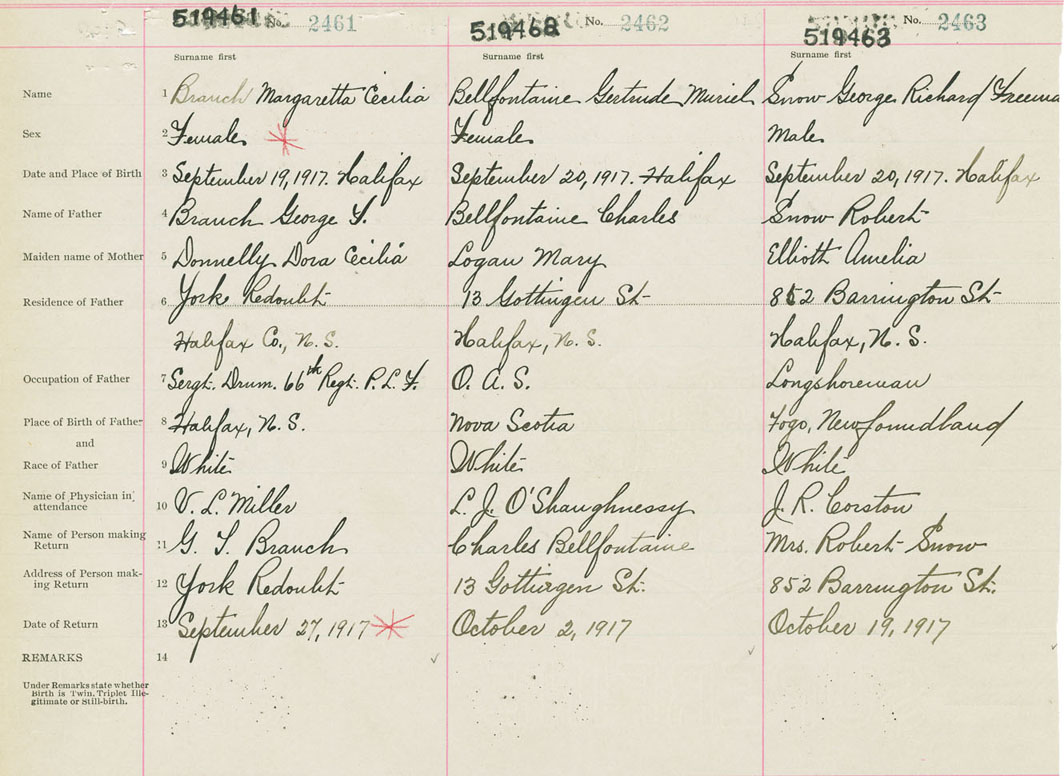 519461 No. 2461 519462 No. 2462 519463 No. 2463
Surname first Surname first Surname first
Name 1 Branch Margaretta Cecilia Bellfontaine Gertrude Muriel Snow George Richard Freema
Sex 2 Female Female Male
Date and Place of Birth 3 September 19, 1917. Halifax September 20, 1917. Halifax September 20, 1917. Halifax
Name of Father 4 Branch George T. Bellfontaine Charles Snow Robert
Maiden name of Mother 5 Donnelly Dora Cecilia Logan Mary Elliott Amelia
Residence of Father 6 York Redoubt 13 Gottingen St 852 Barrington St
Halifax Co., N. S. Halifax, N. S. Halifax, N. S.
Occupation of Father 7 Sergt. Drum. 66th Regt. P. L. F. O. A. S. Longshoreman
Place of Birth of Father 8 Halifax, N. S. Nova Scotia Fogo, Newfoundland
and
Race of Father 9 White White White
Name of Physician in
attendance 10 V. L. Miller L. J. O'Shaughnessy J. R. Corston
Name of Person making
Return 11 G. T. Branch Charles Bellfontaine Mrs. Robert Snow
Address of Person mak-
ing Return 12 York Redoubt 13 Gottingen St. 852 Barrington St.
Date of Return 13 September 27, 1917 October 2, 1917 October 19, 1917
REMARKS 14
Under Remarks state whether
Birth is Twin, Triplet Ille-
gitimate or Still-birth.